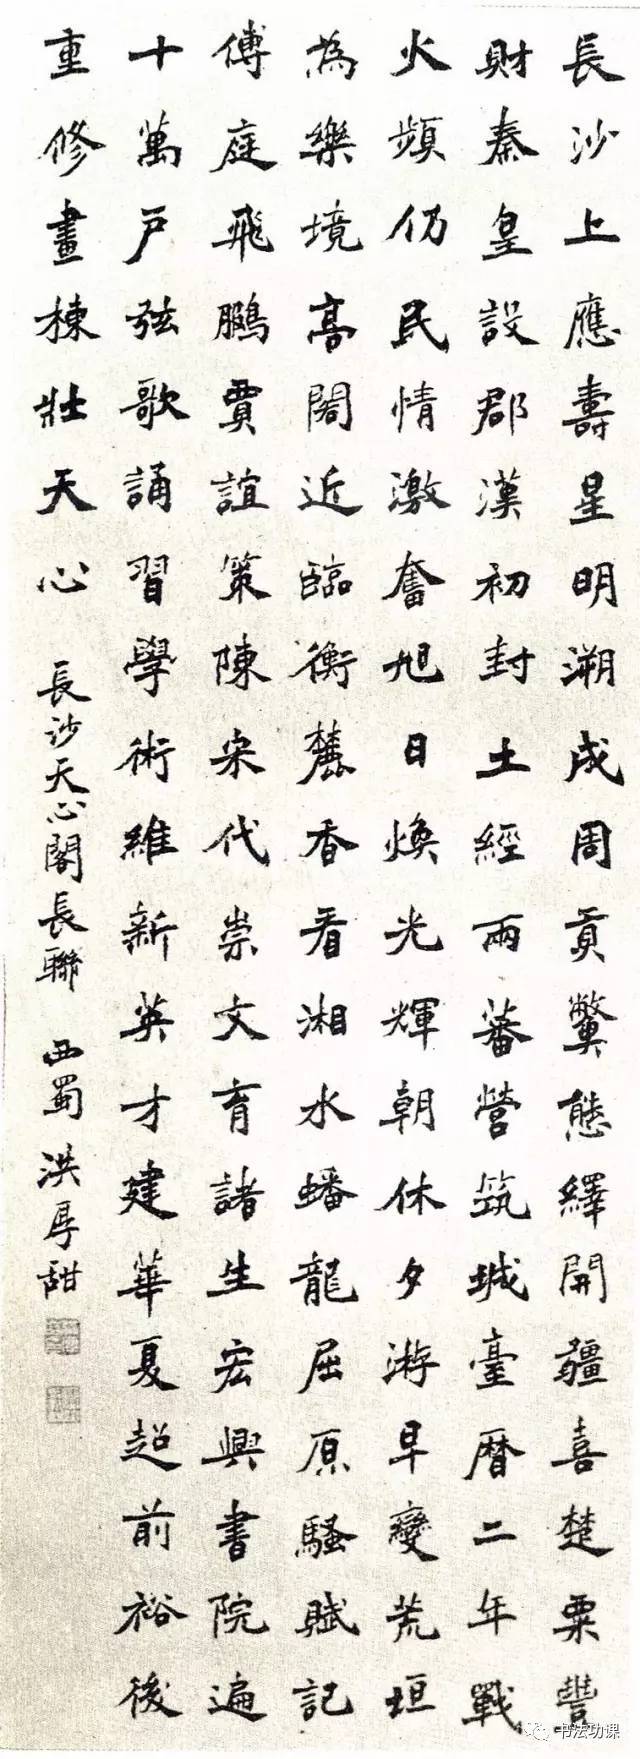 長沙上應壽星明溯成周貢熊繹開疆喜楚粟豐
財秦皇設郡漢初封土經兩蕃營筑城臺暦二年戰
火頻仍民情激奮旭日煥光輝朝休夕游早變荒垣
為樂境高閣近臨衡麓香看湘水蟠龍屈原騷賦記
傅庭飛鵬賈誼策陳宋代崇文育諸生宏興書院遍
十萬戶弦歌誦習學術維新英才建華夏超前裕後
重修畫棟壯天心 長沙天心閣長聯 西蜀洪厚甜
书法功课